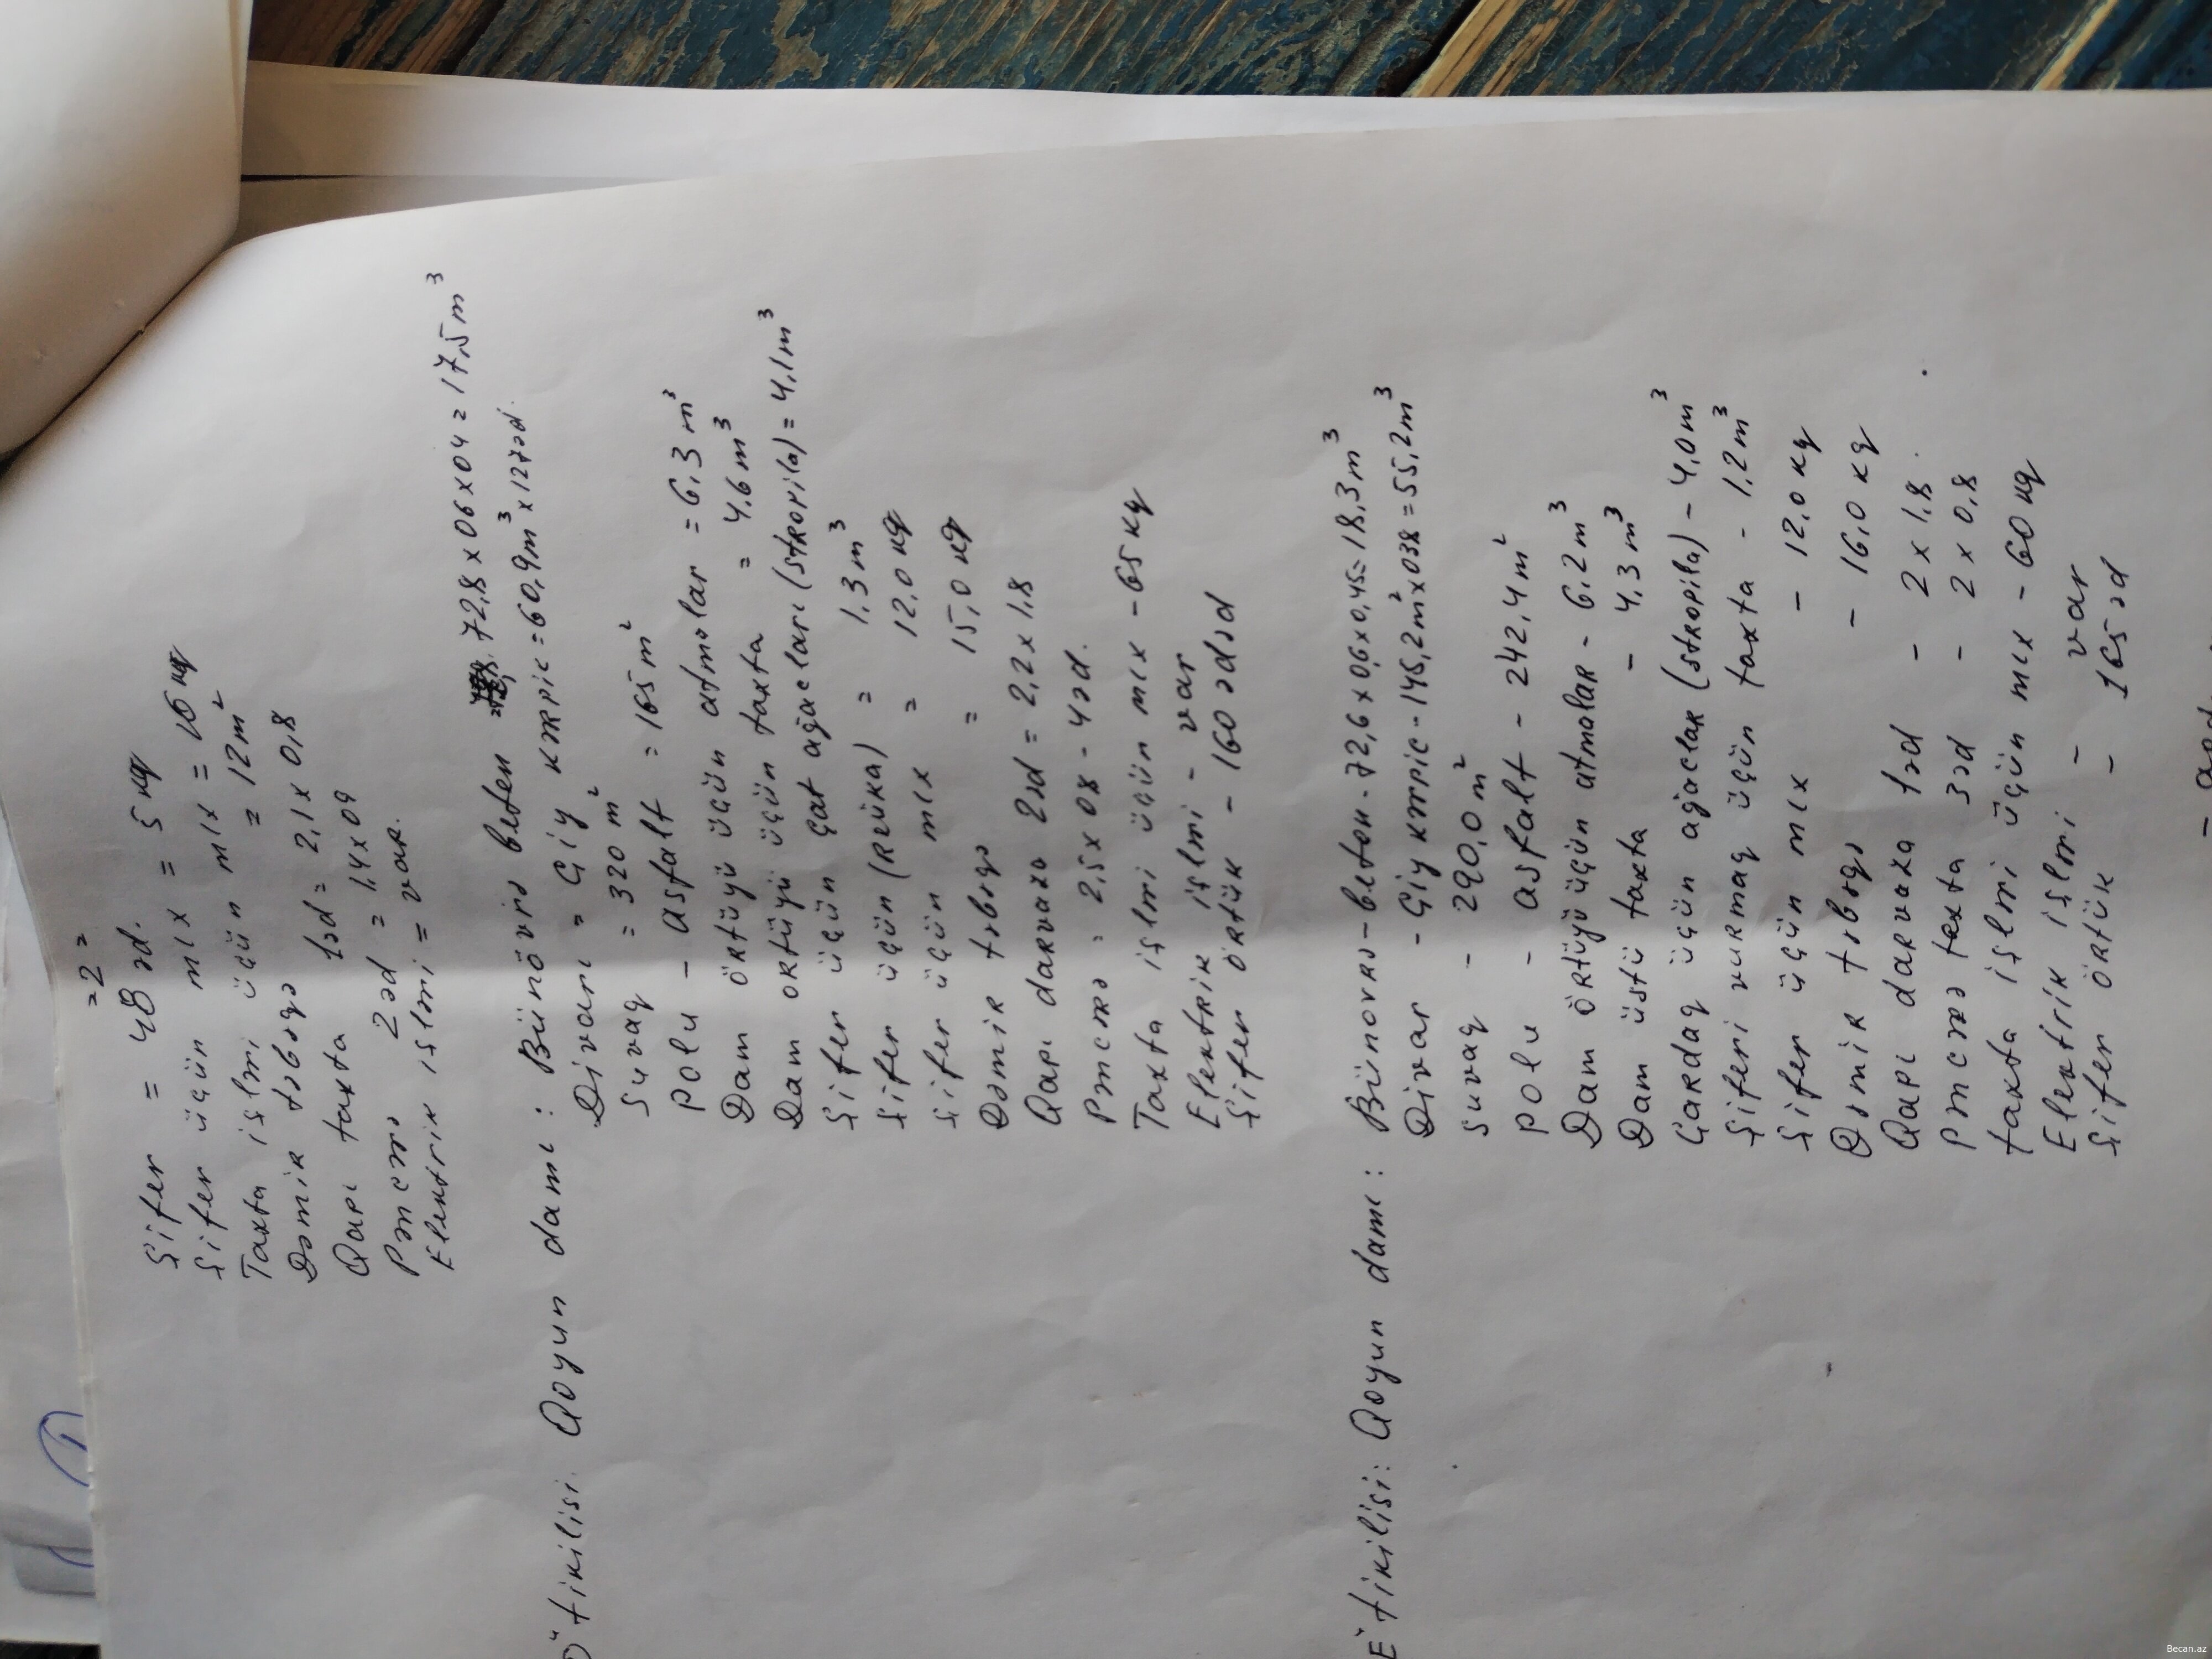 =2=
Şifer = 48 əd.
Şifer üçün mıx = 5 kq
Taxta işləri üçün mıx = 16 kq
Dəmir təbəqə = 12 m²
Qapı taxta 1əd = 2,1 x 0,8
Pəncrə 2əd = 1,4 x 09
Elektrik işləri = var.
D" tikilisi. Qoyun damı: Bünövrə beton 72,8 x 06 x 04 = 17,5 m³
Divarı = Çiy kərpic = 60,9 m³ x 127əd.
Suvaq = 320 m²
Polu - asfalt = 165 m²
Dam örtüyü üçün atmalar = 6,3 m³
Dam örtüyü üçün taxta = 4,6 m³
Şifer üçün çat ağacları (stropila) = 4,1 m³
Şifer üçün (Reüka) = 1,3 m³
Şifer üçün mıx = 12,0 kq
Dəmir təbəqə = 15,0 kq
Qapı darvaza 2əd = 2,2 x 1,8
Pəncrə = 2,5 x 08 - 4əd.
Taxta işləri üçün mıx - 65 kq
Elektrik işləri - var
Şifer örtük - 160 ədəd
E" tikilisi: Qoyun damı: Bünovrə - beton - 72,6 x 0,6 x 0,45 = 18,3 m³
Divar - Çiy kərpic - 145,2 m² x 038 = 55,2 m³
Suvaq - 290,0 m²
Polu - asfalt - 242,4 m²
Dam örtüyü üçün atmalar - 6,2 m³
Dam üstü taxta - 4,3 m³
Çardaq üçün ağaclar (stropila) - 4,0 m³
Şiferi vurmaq üçün taxta - 1,2 m³
Şifer üçün mıx - 12,0 kq
Dəmir təbəqə - 16,0 kq
Qapı darvaza 1əd - 2 x 1,8.
Pəncrə taxta 3əd - 2 x 0,8
taxta işləri üçün mıx - 60 kq
Elektrik işləri - var
Şifer örtük - 165 əd
Becan.az